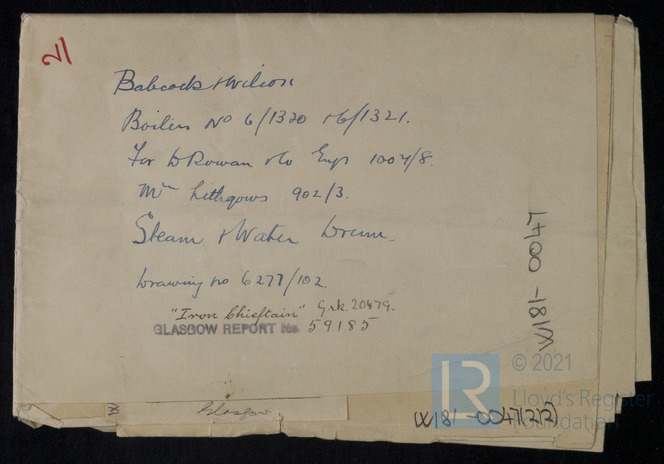 21
Babcock & Wilcox
Boilers No 6/1320 & 6/1321.
For D Rowan & Co Engs 1007/8.
Mrs Lithgows 902/3.
Steam & Water Drum.
Drawing no 6277/102
"Iron Chieftain" Grk. 20479.
GLASGOW REPORT No. 59185
W181-0047
Glasgow
W181-0047(2/2)
LR
© 2021
Lloyd's Register
Foundation